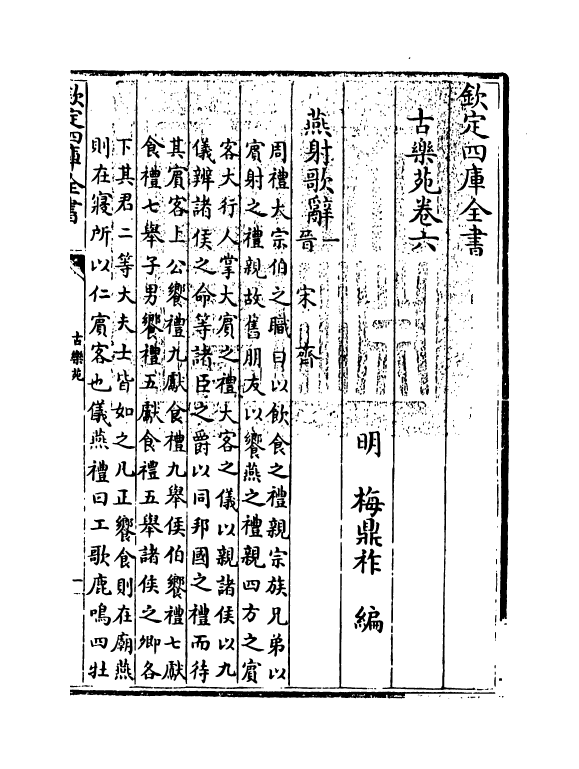 欽定四庫全書
古樂苑卷六
明 梅鼎祚 編
燕射歌辭一 晉 宋 齊
周禮大宗伯之職曰以飲食之禮親宗族兄弟以
賓射之禮親故舊朋友以饗燕之禮親四方之賓
客大行人掌大賓之禮大客之儀以親諸侯以九
儀辨諸侯之命等諸臣之爵以同邦國之禮而待
其賓客上公饗禮九獻食禮九舉侯伯饗禮七獻
食禮七舉子男饗禮五獻食禮五舉諸侯之卿各
下其君二等大夫士皆如之凡正饗食則在廟燕
則在寢所以仁賓客也儀燕禮曰工歌鹿鳴四牡
欽定四庫全書
古樂苑
一